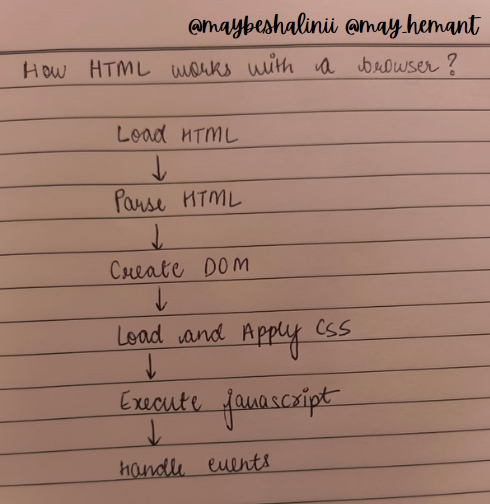 @maybeshalinii @may_hemant
How HTML works with a browser?
Load HTML
↓
Parse HTML
↓
Create DOM
↓
Load and Apply CSS
↓
Execute javascript
↓
Handle events